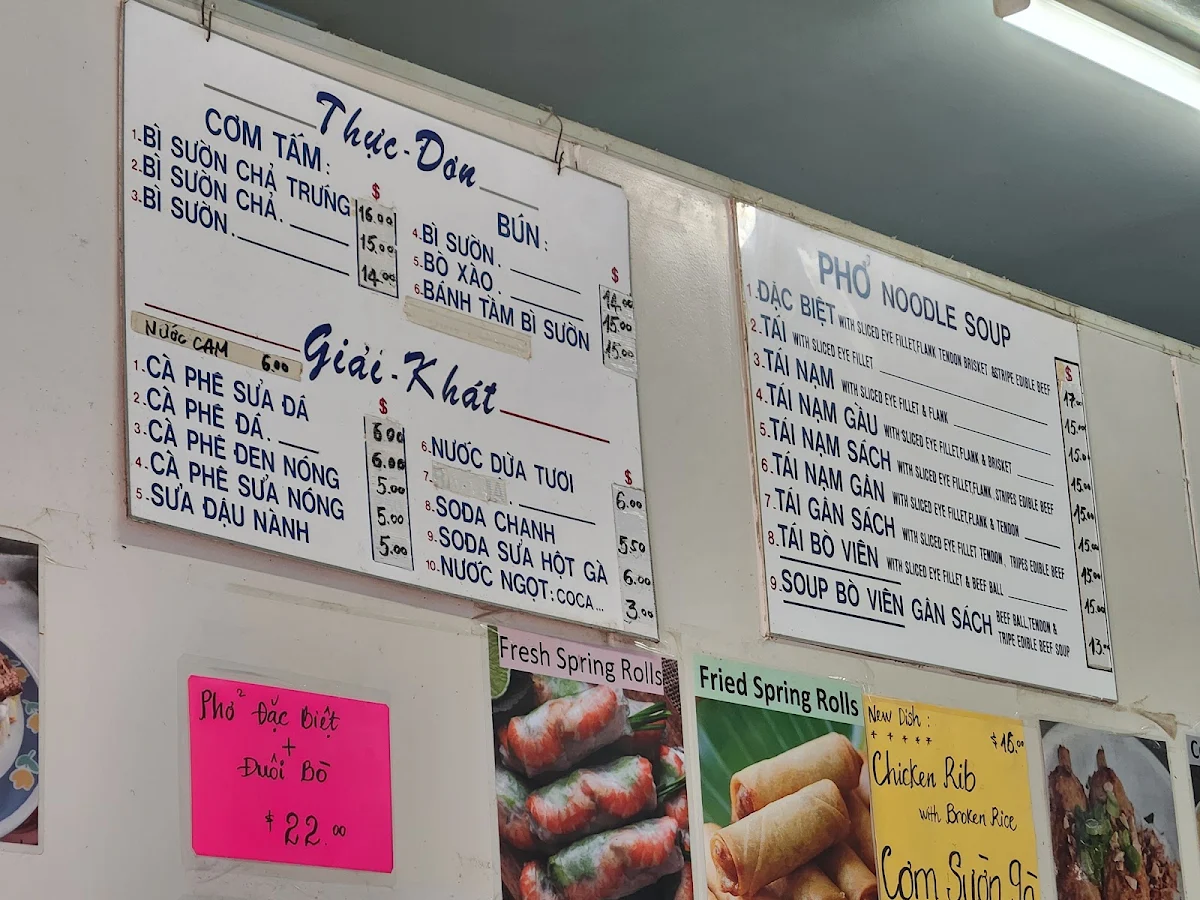 Thực-Đơn
CƠM TẤM:
$
1.BÌ SƯỜN CHẢ TRƯNG 16.00
2.BÌ SƯỜN CHẢ. 15.00
3.BÌ SƯỜN. 14.00
BÚN:
$
4.BÌ SƯỜN. 14.00
5.BÒ XÀO. 15.00
6.BÁNH TẦM BÌ SƯỜN 15.00
NƯỚC CAM 6.00
Giải-Khát
$
1.CÀ PHÊ SƯA ĐÁ 6.00
2.CÀ PHÊ ĐÁ. 6.00
3.CÀ PHÊ ĐEN NÓNG 5.00
4.CÀ PHÊ SƯA NÓNG 5.00
5.SƯA ĐẬU NÀNH 5.00
$
6.NƯỚC DỪA TƯƠI 6.00
7.
8.SODA CHANH 5.50
9.SODA SƯA HỘT GÀ 6.00
10.NƯỚC NGỌT: COCA... 3.00
PHỞ NOODLE SOUP
$
1.ĐẶC BIỆT WITH SLICED EYE FILLET,FLANK TENDON BRISKET &STRIPE EDIBLE BEEF 17.00
2.TÁI WITH SLICED EYE FILLET 15.00
3.TÁI NẠM WITH SLICED EYE FILLET & FLANK 15.00
4.TÁI NẠM GẦU WITH SLICED EYE FILLET,FLANK & BRISKET 15.00
5.TÁI NẠM SÁCH WITH SLICED EYE FILLET,FLANK ,STRIPES EDIBLE BEEF 15.00
6.TÁI NẠM GÂN WITH SLICED EYE FILLET,FLANK & TENDON 15.00
7.TÁI GÂN SÁCH WITH SLICED EYE FILLET TENDON , TRIPES EDIBLE BEEF 15.00
8.TÁI BÒ VIÊN WITH SLICED EYE FILLET & BEEF BALL 15.00
9.SOUP BÒ VIÊN GÂN SÁCH BEEF BALL,TENDON & 13.00
TRIPE EDIBLE BEEF SOUP
Phở Đặc Biệt
+
Đuôi Bò
$22.00
Fresh Spring Rolls
Fried Spring Rolls
New Dish :
$16.00
Chicken Rib
with Broken Rice
Cơm Sườn gà